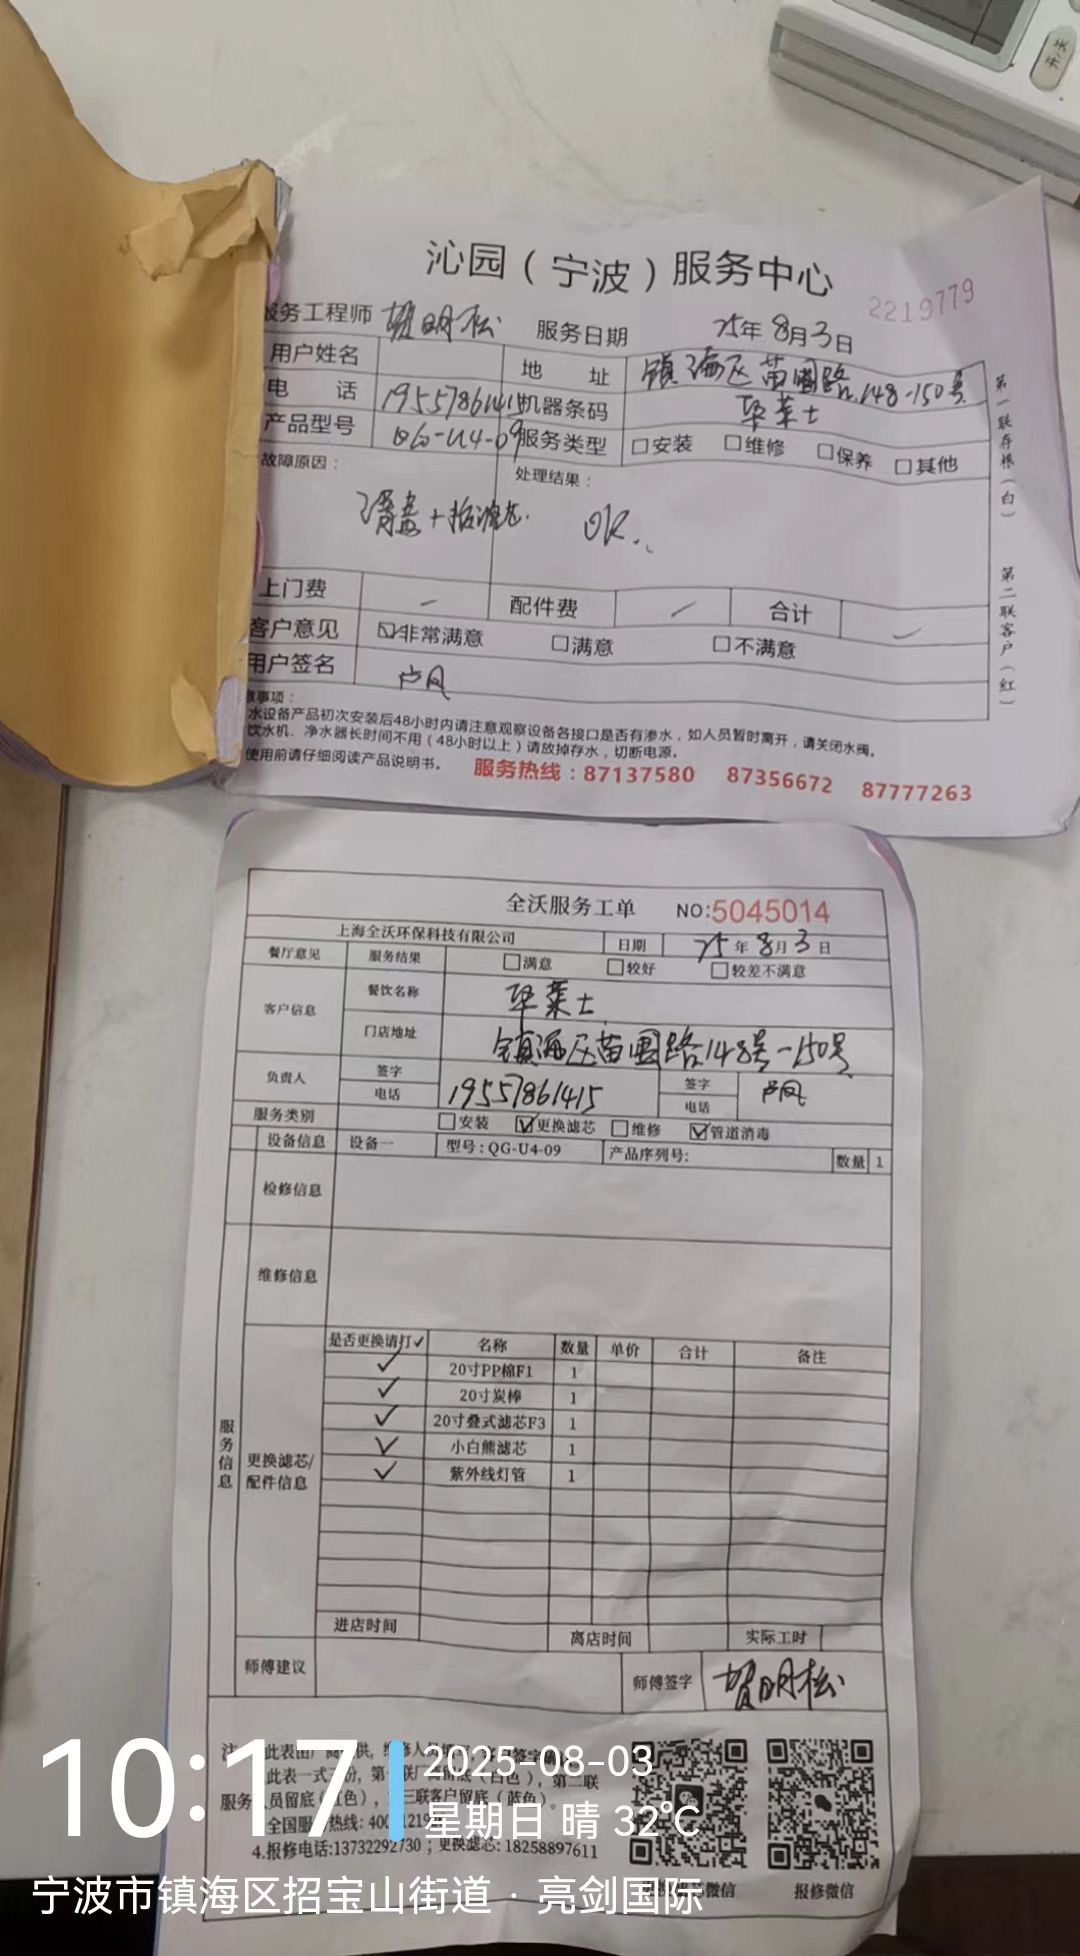 开/关
沁园（宁波）服务中心
2219779
服务工程师 贺明松 服务日期 25年8月3日
用户姓名 地 址 镇海区苗圃路148-150号
电 话 19557861415 机器条码 华莱士
产品型号 QG-U4-09 服务类型 □安装 □维修 □保养 □其他
故障原因： 处理结果：
消毒+换滤芯. OK.
上门费 — 配件费 — 合计 —
客户意见 ☑非常满意 □满意 □不满意
用户签名 卢凤
意事项：
水设备产品初次安装后48小时内请注意观察设备各接口是否有渗水，如人员暂时离开，请关闭水阀。
饮水机、净水器长时间不用（48小时以上）请放掉存水，切断电源。
使用前请仔细阅读产品说明书。 服务热线：87137580 87356672 87777263
第一联存根（白） 第二联客户（红）
全沃服务工单 NO:5045014
上海全沃环保科技有限公司 日期 25年8月3日
餐厅意见 服务结果 □满意 □较好 □较差不满意
客户信息 餐饮名称 华莱士
门店地址 镇海区苗圃路148号-150号
负责人 签字 签字 卢凤
电话 19557861415 电话
服务类别 □安装 ☑更换滤芯 □维修 ☑管道消毒
设备信息 设备一 型号：QG-U4-09 产品序列号: 数量 1
检修信息
维修信息
服务信息
更换滤芯/配件信息
是否更换请打✓ 名称 数量 单价 合计 备注
✓ 20寸PP棉F1 1
✓ 20寸炭棒 1
✓ 20寸叠式滤芯F3 1
✓ 小白熊滤芯 1
✓ 紫外线灯管 1
进店时间 离店时间 实际工时
师傅建议 师傅签字 贺明松
注
此表一式三份，第一联厂商留底（白色），第二联
服务人员留底（红色），第三联客户留底（蓝色）。
全国服务热线：400
4.报修电话:13732292730；更换滤芯：18258897611
微信 报修微信
10:17
2025-08-03
星期日 晴 32℃
宁波市镇海区招宝山街道·亮剑国际